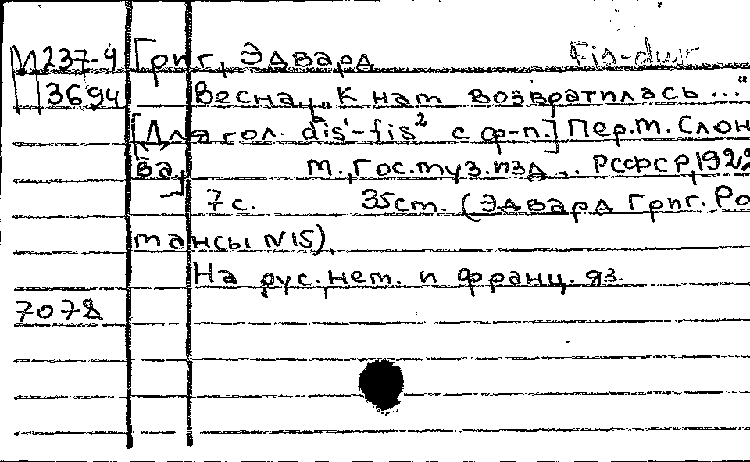 М 237-4 Григ, Эдвард Fis-dur
3694 Весна. „К нам возвратилась ..."
[Для гол. dis¹-fis² с ф-п.] Пер. М. Слон
ва, М., Гос. муз. изд. РСФСР, 192
7 с. 35 см. (Эдвард Григ. Ро
мансы N 15).
На рус. нем. и франц. яз.
7078